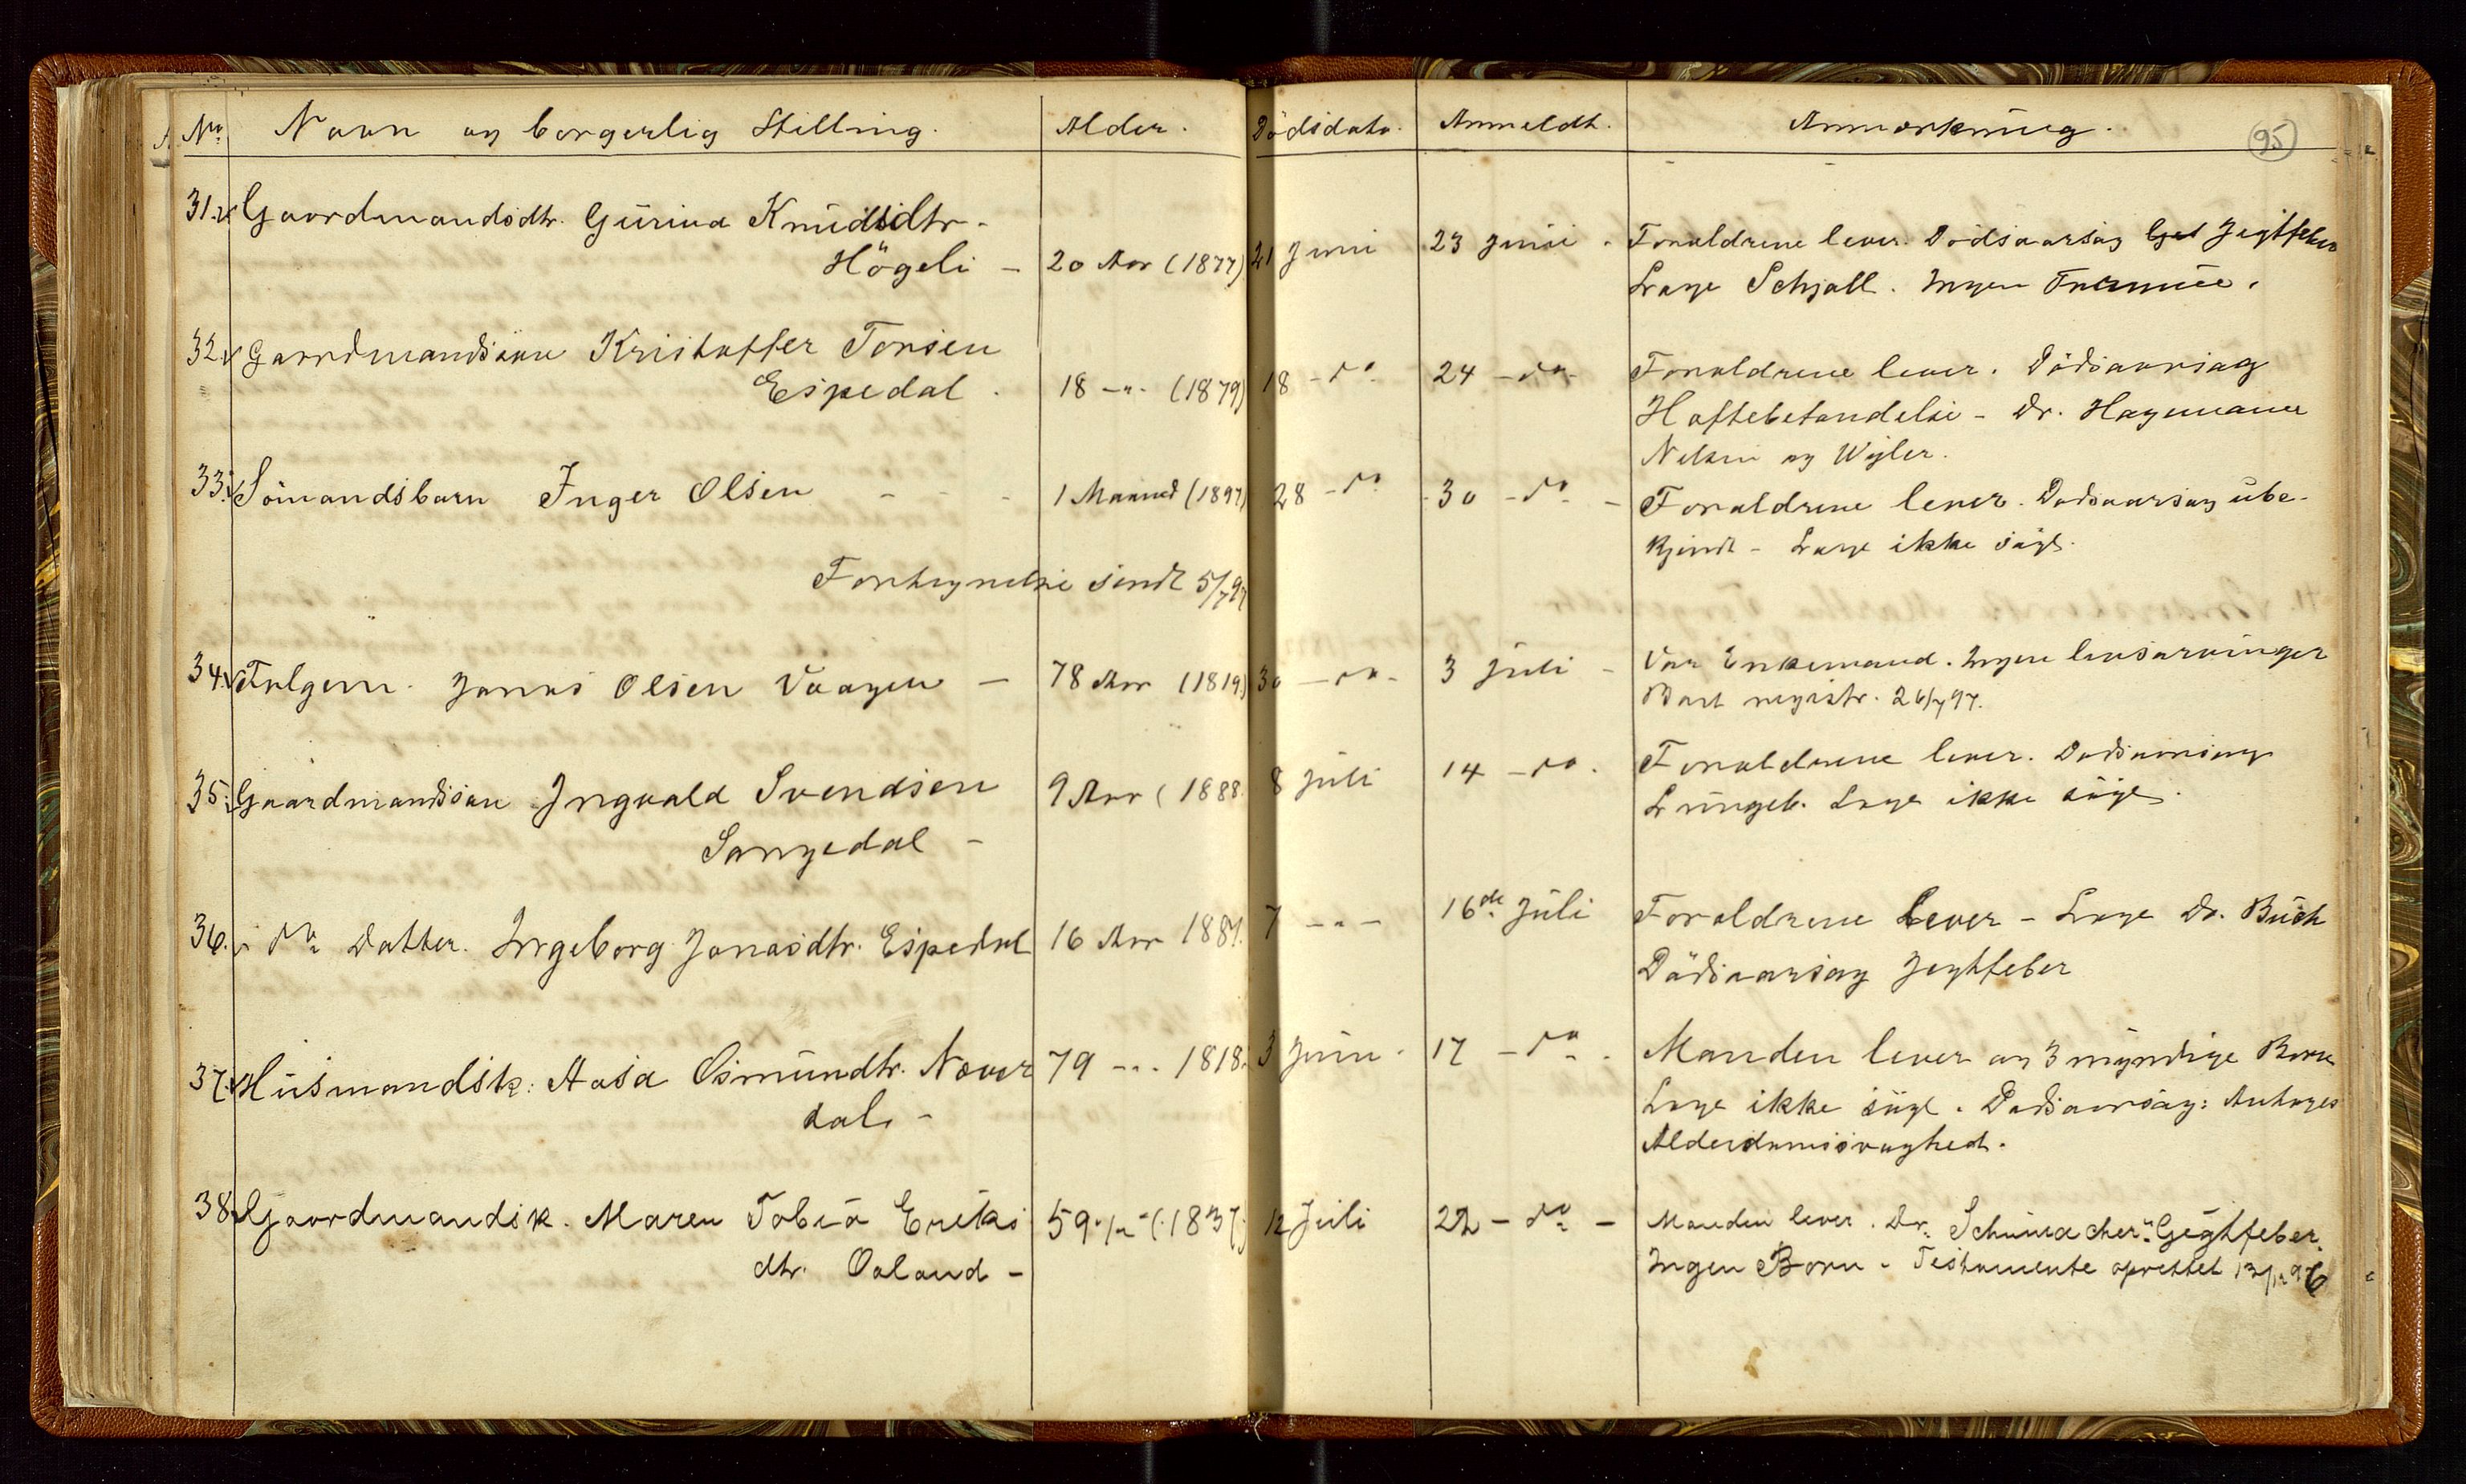 No. Navn og borgerlig Stilling. Alder. Dödsdato. Anmeldt. Anmærkning. 95
31. Gaardmandsdtr. Gurina Knudsdtr. 21 Juni 23 Juni Forældrene lever. Dödsaarsag Gigtfeber
Högeli – 20 Aar (1877) Læge Schjøll. Ingen Formue.
32. Gaardmandssön Kristoffer Torsen Forældrene lever. Dödsaarsag
Espedal. 18 –"– (1879) 18 – do 24 – do – Hoftebetændelse – Dr. Hagemann
Nelsen og Wyler.
33. Sömandsbarn Inger Olsen – – – 1 Maaned (1897) 28 – do 30 – do – Forældrene lever. Dödsaarsag ube-
kjendt – Læge ikke sögt.
Fortegnelse sendt 5/7 97
34. Fælgem. Jonas Olsen Vaagen – 78 Aar (1819) 30 – do – 3 Juli – Var Enkemand. Ingen livsarvinger
Boet registr. 26/7 97.
35. Gaardmandssön Ingvald Svendsen 9 Aar (1888. 8 Juli 14 – do. Forældrene lever. Dödsaarsag
Songedal – Lungeb. Læge ikke sögt.
36. do Datter. Ingeborg Jonasdtr. Espedal 16 Aar 1881. 7 –"– 16de Juli Forældrene lever – Læge Dr. Buch
Dödsaarsag Jegtfeber
37. Husmandsk: Aasa Osmundtr. Næver 79 –"– 1818. 3 Juni. 17 – do. Manden lever og 3 myndige Born
dal. – Læge ikke sögt. Dödsaarsag: Antages
Alderdomssvaghed.
38. Gaardmandsk. Maren Tobia Eriks 59 1/2 –"– (1837) 12 Juli 22 – do – Manden lever. Dr. Schumacher. Gegtfeber.
dtr. Oaland – Ingen Born – Testamente oprettet 13/12 96